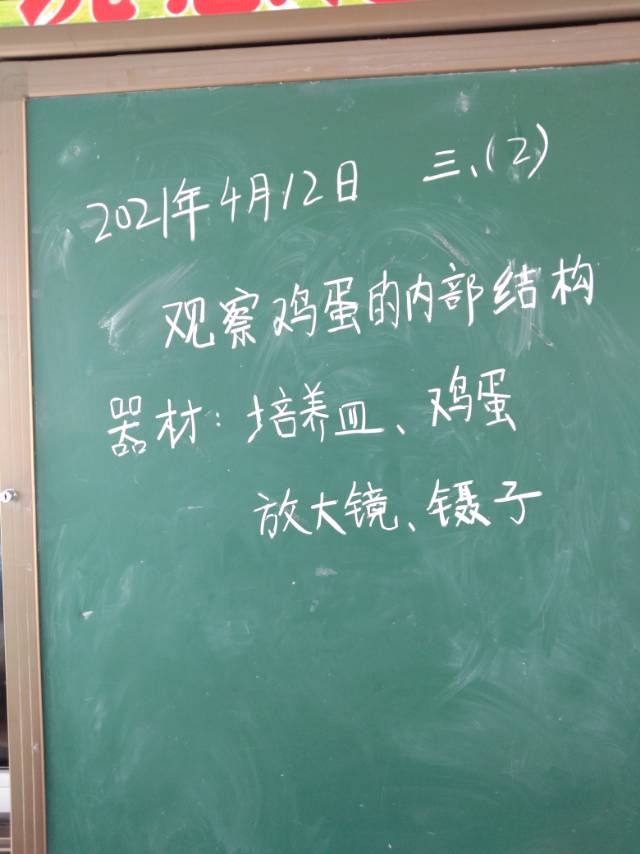 2021年4月12日 三、(2)
观察鸡蛋的内部结构
器材：培养皿、鸡蛋
放大镜、镊子